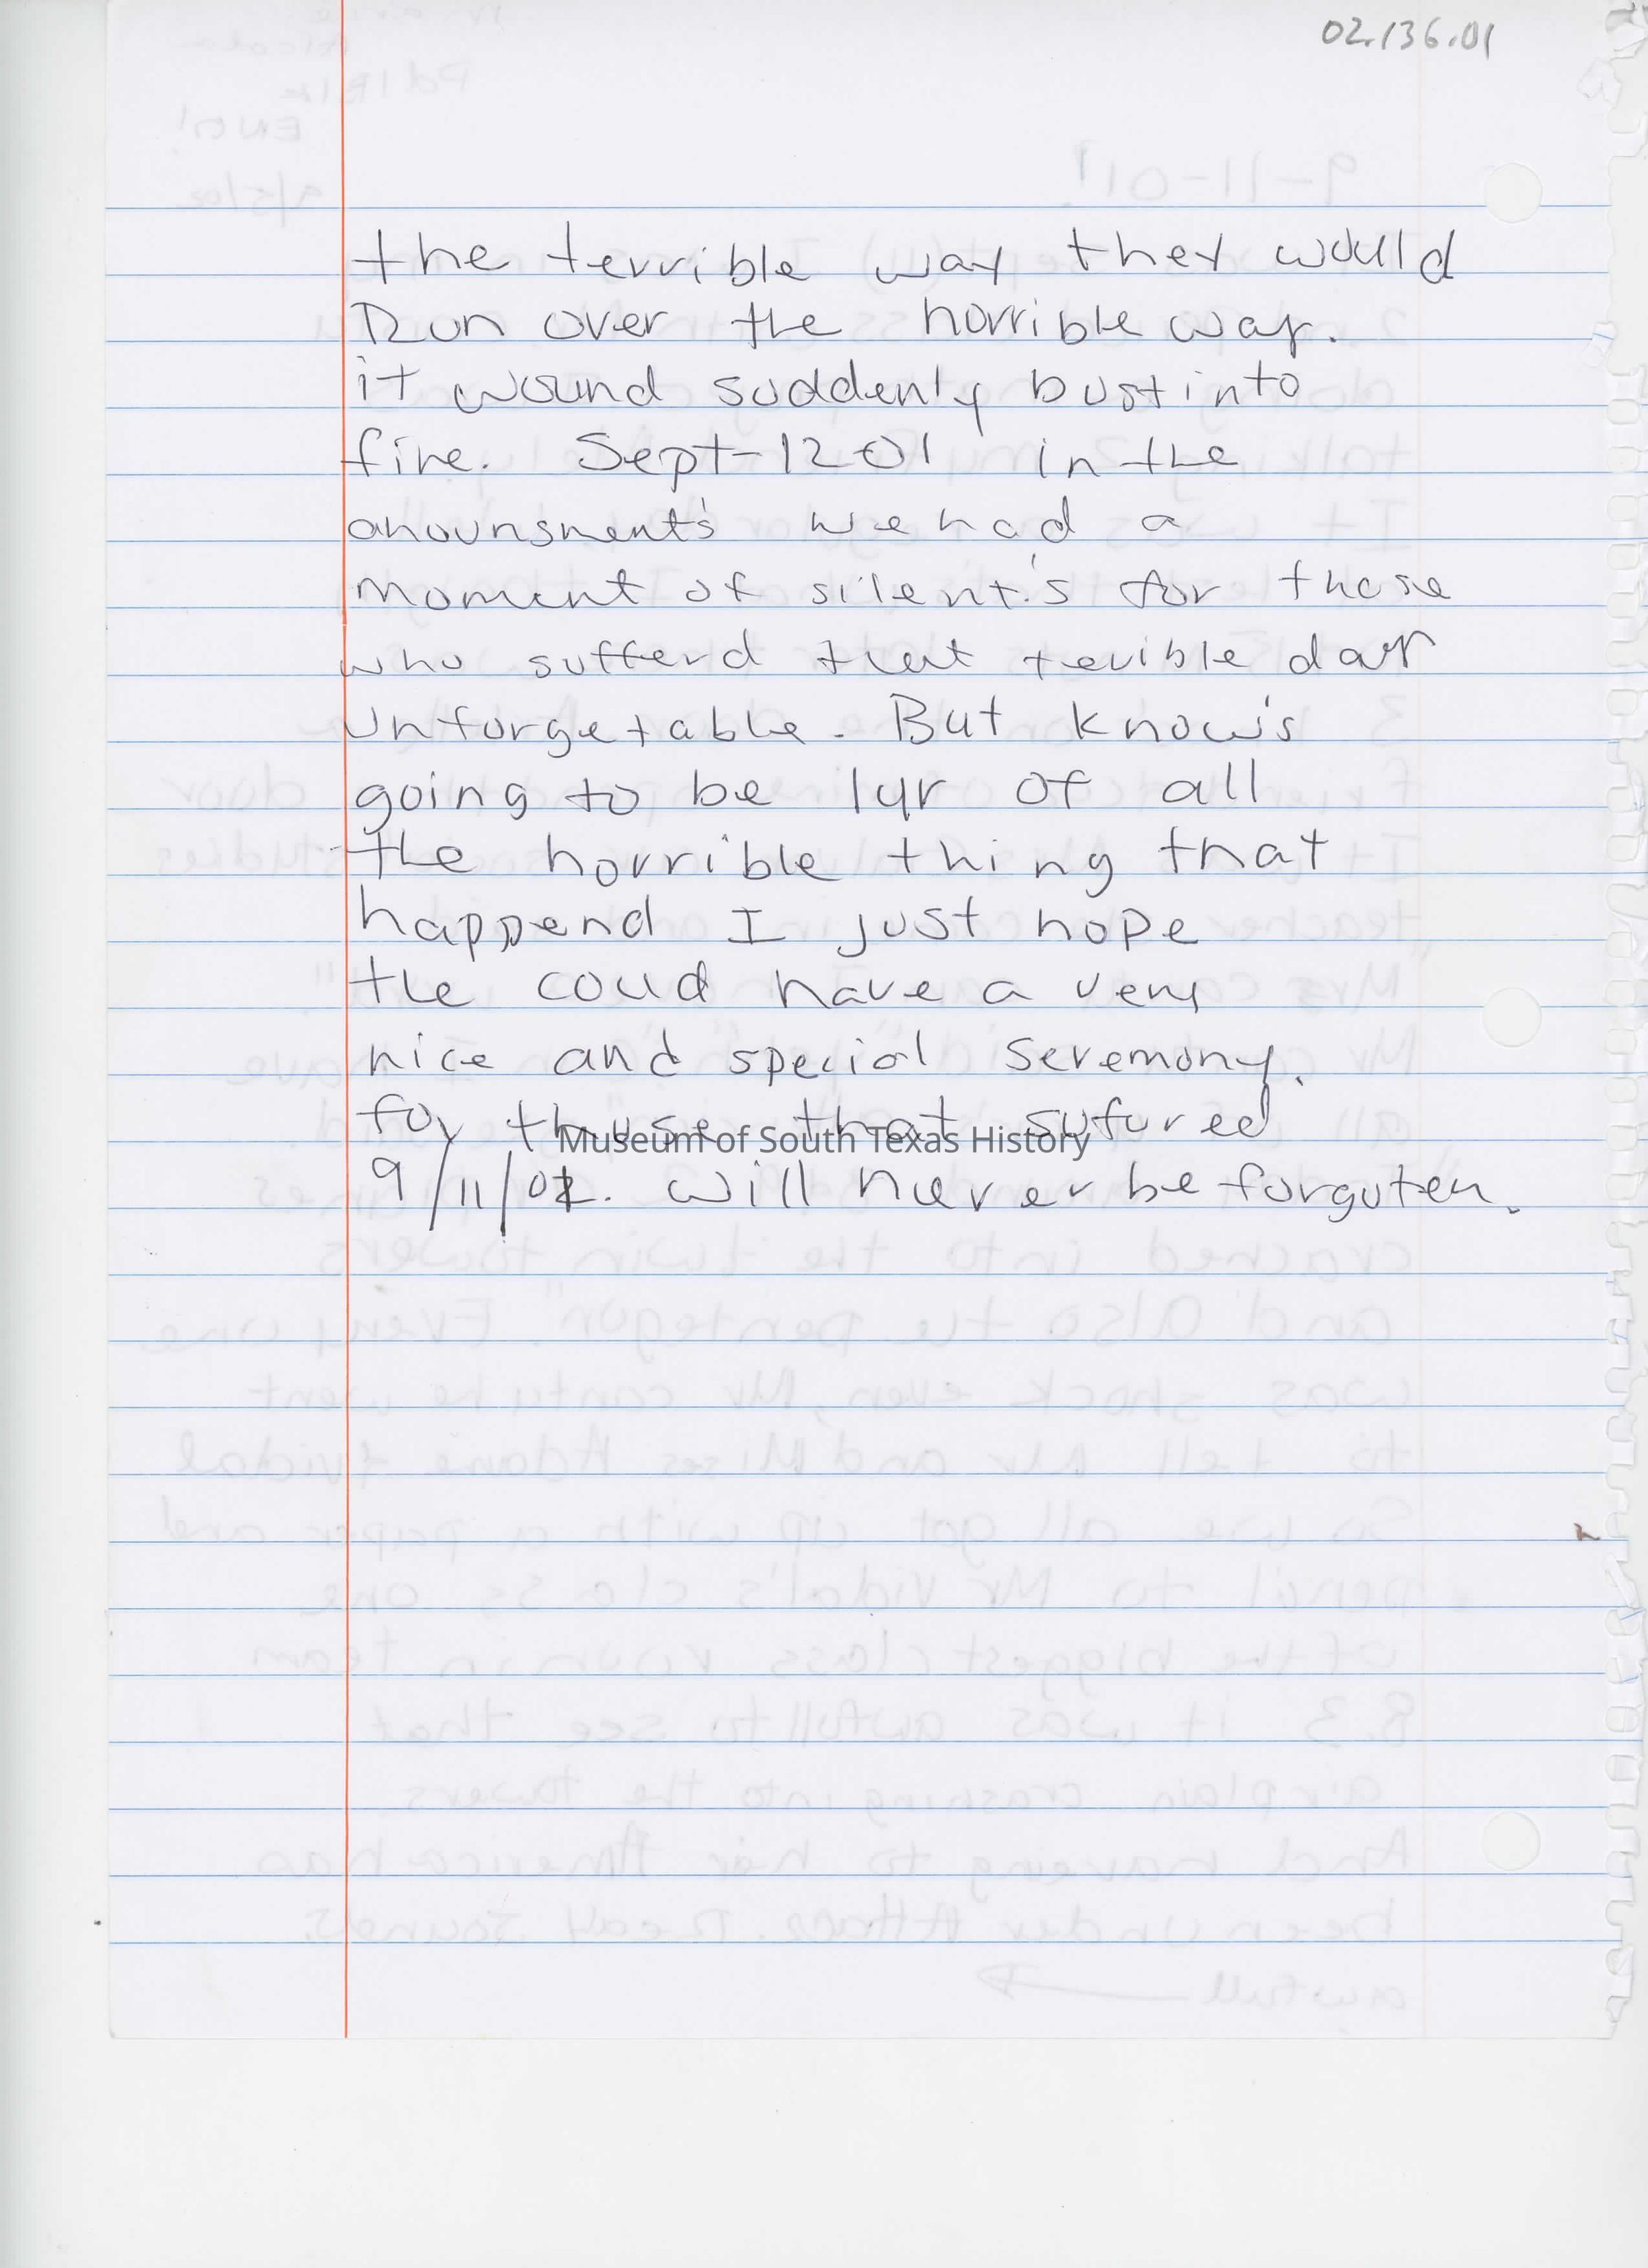 02.136.01
the terrible way they would
Run over the horrible way.
it wound suddenly bust into
fire. Sept-1201 in the
anounsment's we had a
moment of silent's for those
who sufferd that terible day
unforgetable. But know's
going to be 1yr of all
the horrible thing that
happend I just hope
the coud have a very
nice and special seremony.
for those that sufured
Museum of South Texas History
9/11/01. will never be forgoten.